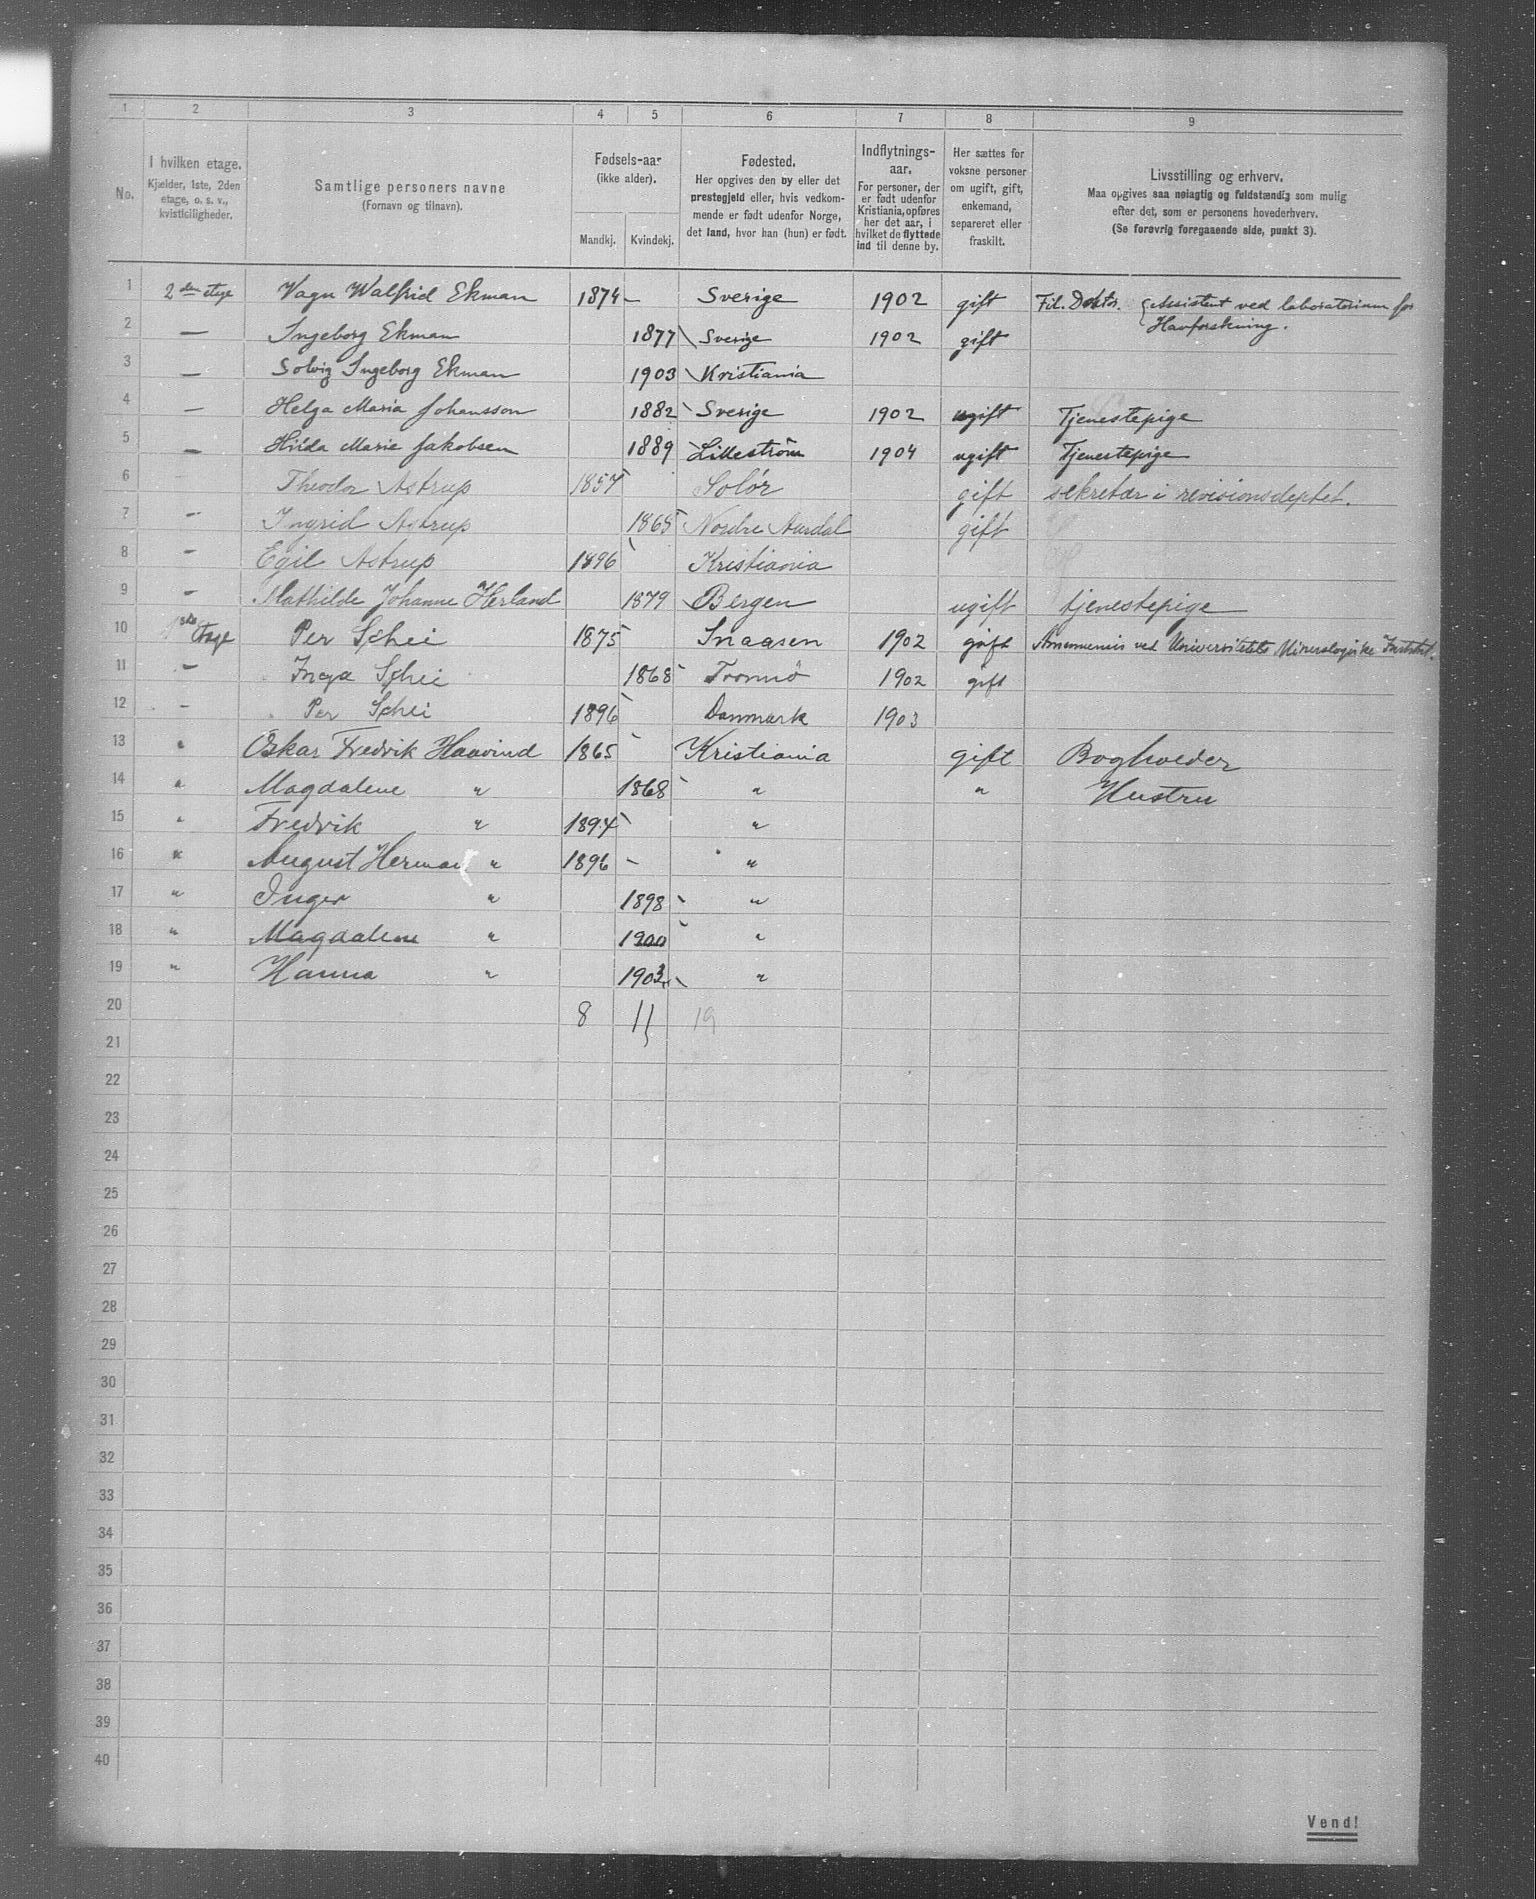 1 2 3 4 5 6 7 8 9
No.
I hvilken etage.
Kjælder, 1ste, 2den
etage, o. s. v.,
kvistleiligheder.
Samtlige personers navne
(Fornavn og tilnavn).
Fødsels-aar
(ikke alder).
Mandkj. Kvindekj.
Fødested.
Her opgives den by eller det
prestegjeld eller, hvis vedkom-
mende er født udenfor Norge,
det land, hvor han (hun) er født.
Indflytnings-
aar.
For personer, der
er født udenfor
Kristiania, opføres
her det aar, i
hvilket de flyttede
ind til denne by.
Her sættes for
voksne personer
om ugift, gift,
enkemand,
separeret eller
fraskilt.
Livsstilling og erhverv.
Maa opgives saa nøiagtig og fuldstændig som mulig
efter det, som er personens hovederhverv.
(Se forøvrig foregaaende side, punkt 3).
1 2den etage Vagn Walfrid Ekman 1874 – Sverige 1902 gift Fil. Doktor. { Assistent ved laboratorium for
Havforskning.
2 — Ingeborg Ekman 1877 Sverige 1902 gift
3 — Solvig Ingeborg Ekman 1903 Kristiania
4 — Helga Maria Johansson 1882 Sverige 1902 ugift Tjenestepige
5 — Hilda Marie Jakobsen 1889 Lilleström 1904 ugift Tjenestepige
6 Theodor Astrup 1857 Solör gift sekretær i revisionsdeptet.
7 — Ingrid Astrup 1865 Nordre Aurdal gift
8 — Egil Astrup 1896 Kristiania
9 — Mathilde Johanne Herland 1879 Bergen ugift tjenestepige
10 1ste Etage Per Schei 1875 Snaasen 1902 gift Amanuensis ved Universitetets Mineralogiske Institut.
11 — Inga Schei 1868 Tromsö 1902 gift
12 — Per Schei 1896 Danmark 1903
13 " Oskar Fredvik Haavind 1865 Kristiania gift Bogholder
14 " Magdalene " 1868 " " Hustru
15 " Fredvik " 1894 "
16 " August Herman " 1896 – "
17 " Inger " 1898 "
18 " Magdalene " 1900 "
19 " Hanna " 1903 "
20 8 11 19
21
22
23
24
25
26
27
28
29
30
31
32
33
34
35
36
37
38
39
40
Vend!